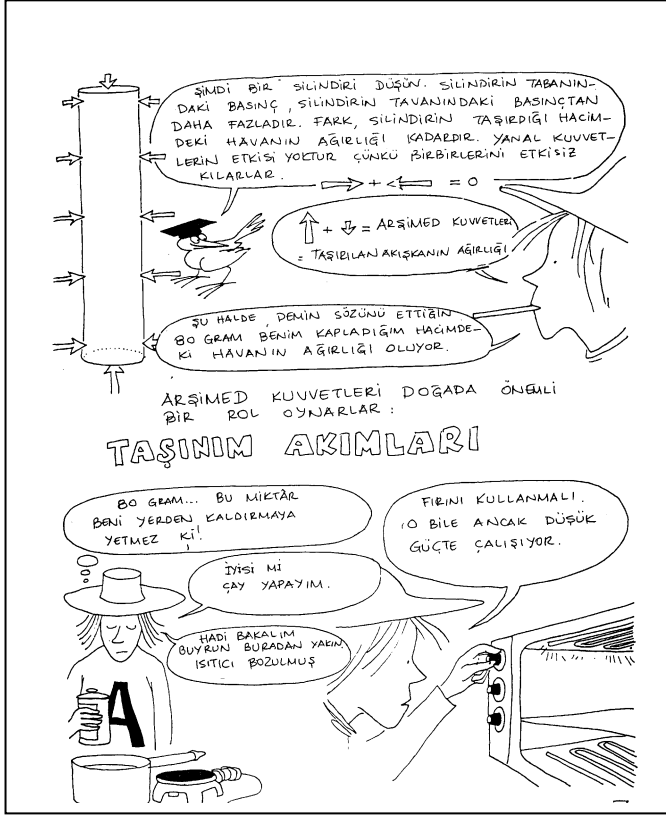 ŞİMDİ BİR SİLİNDİRİ DÜŞÜN. SİLİNDİRİN TABANIN-
DAKİ BASINÇ, SİLİNDİRİN TAVANINDAKİ BASINÇTAN
DAHA FAZLADIR. FARK, SİLİNDİRİN TAŞIRDIĞI HACİM-
DEKİ HAVANIN AĞIRLIĞI KADARDIR. YANAL KUVVET-
LERİN ETKİSİ YOKTUR ÇÜNKÜ BİRBİRLERİNİ ETKİSİZ
KILARLAR.
⇨ + ⇦ = 0
⇧ + ⇩ = ARŞİMED KUVVETLERİ
= TAŞIRILAN AKIŞKANIN AĞIRLIĞI
ŞU HALDE, DEMİN SÖZÜNÜ ETTİĞİN
80 GRAM BENİM KAPLADIĞIM HACİMDE-
Kİ HAVANIN AĞIRLIĞI OLUYOR.
ARŞİMED KUVVETLERİ DOĞADA ÖNEMLİ
BİR ROL OYNARLAR :
TAŞINIM AKIMLARI
80 GRAM... BU MİKTÂR
BENİ YERDEN KALDIRMAYA
YETMEZ Kİ!
İYİSİ Mİ
ÇAY YAPAYIM.
FIRINI KULLANMALI.
O BİLE ANCAK DÜŞÜK
GÜÇTE ÇALIŞIYOR.
HADİ BAKALIM
BUYRUN BURADAN YAKIN.
ISITICI BOZULMUŞ
A